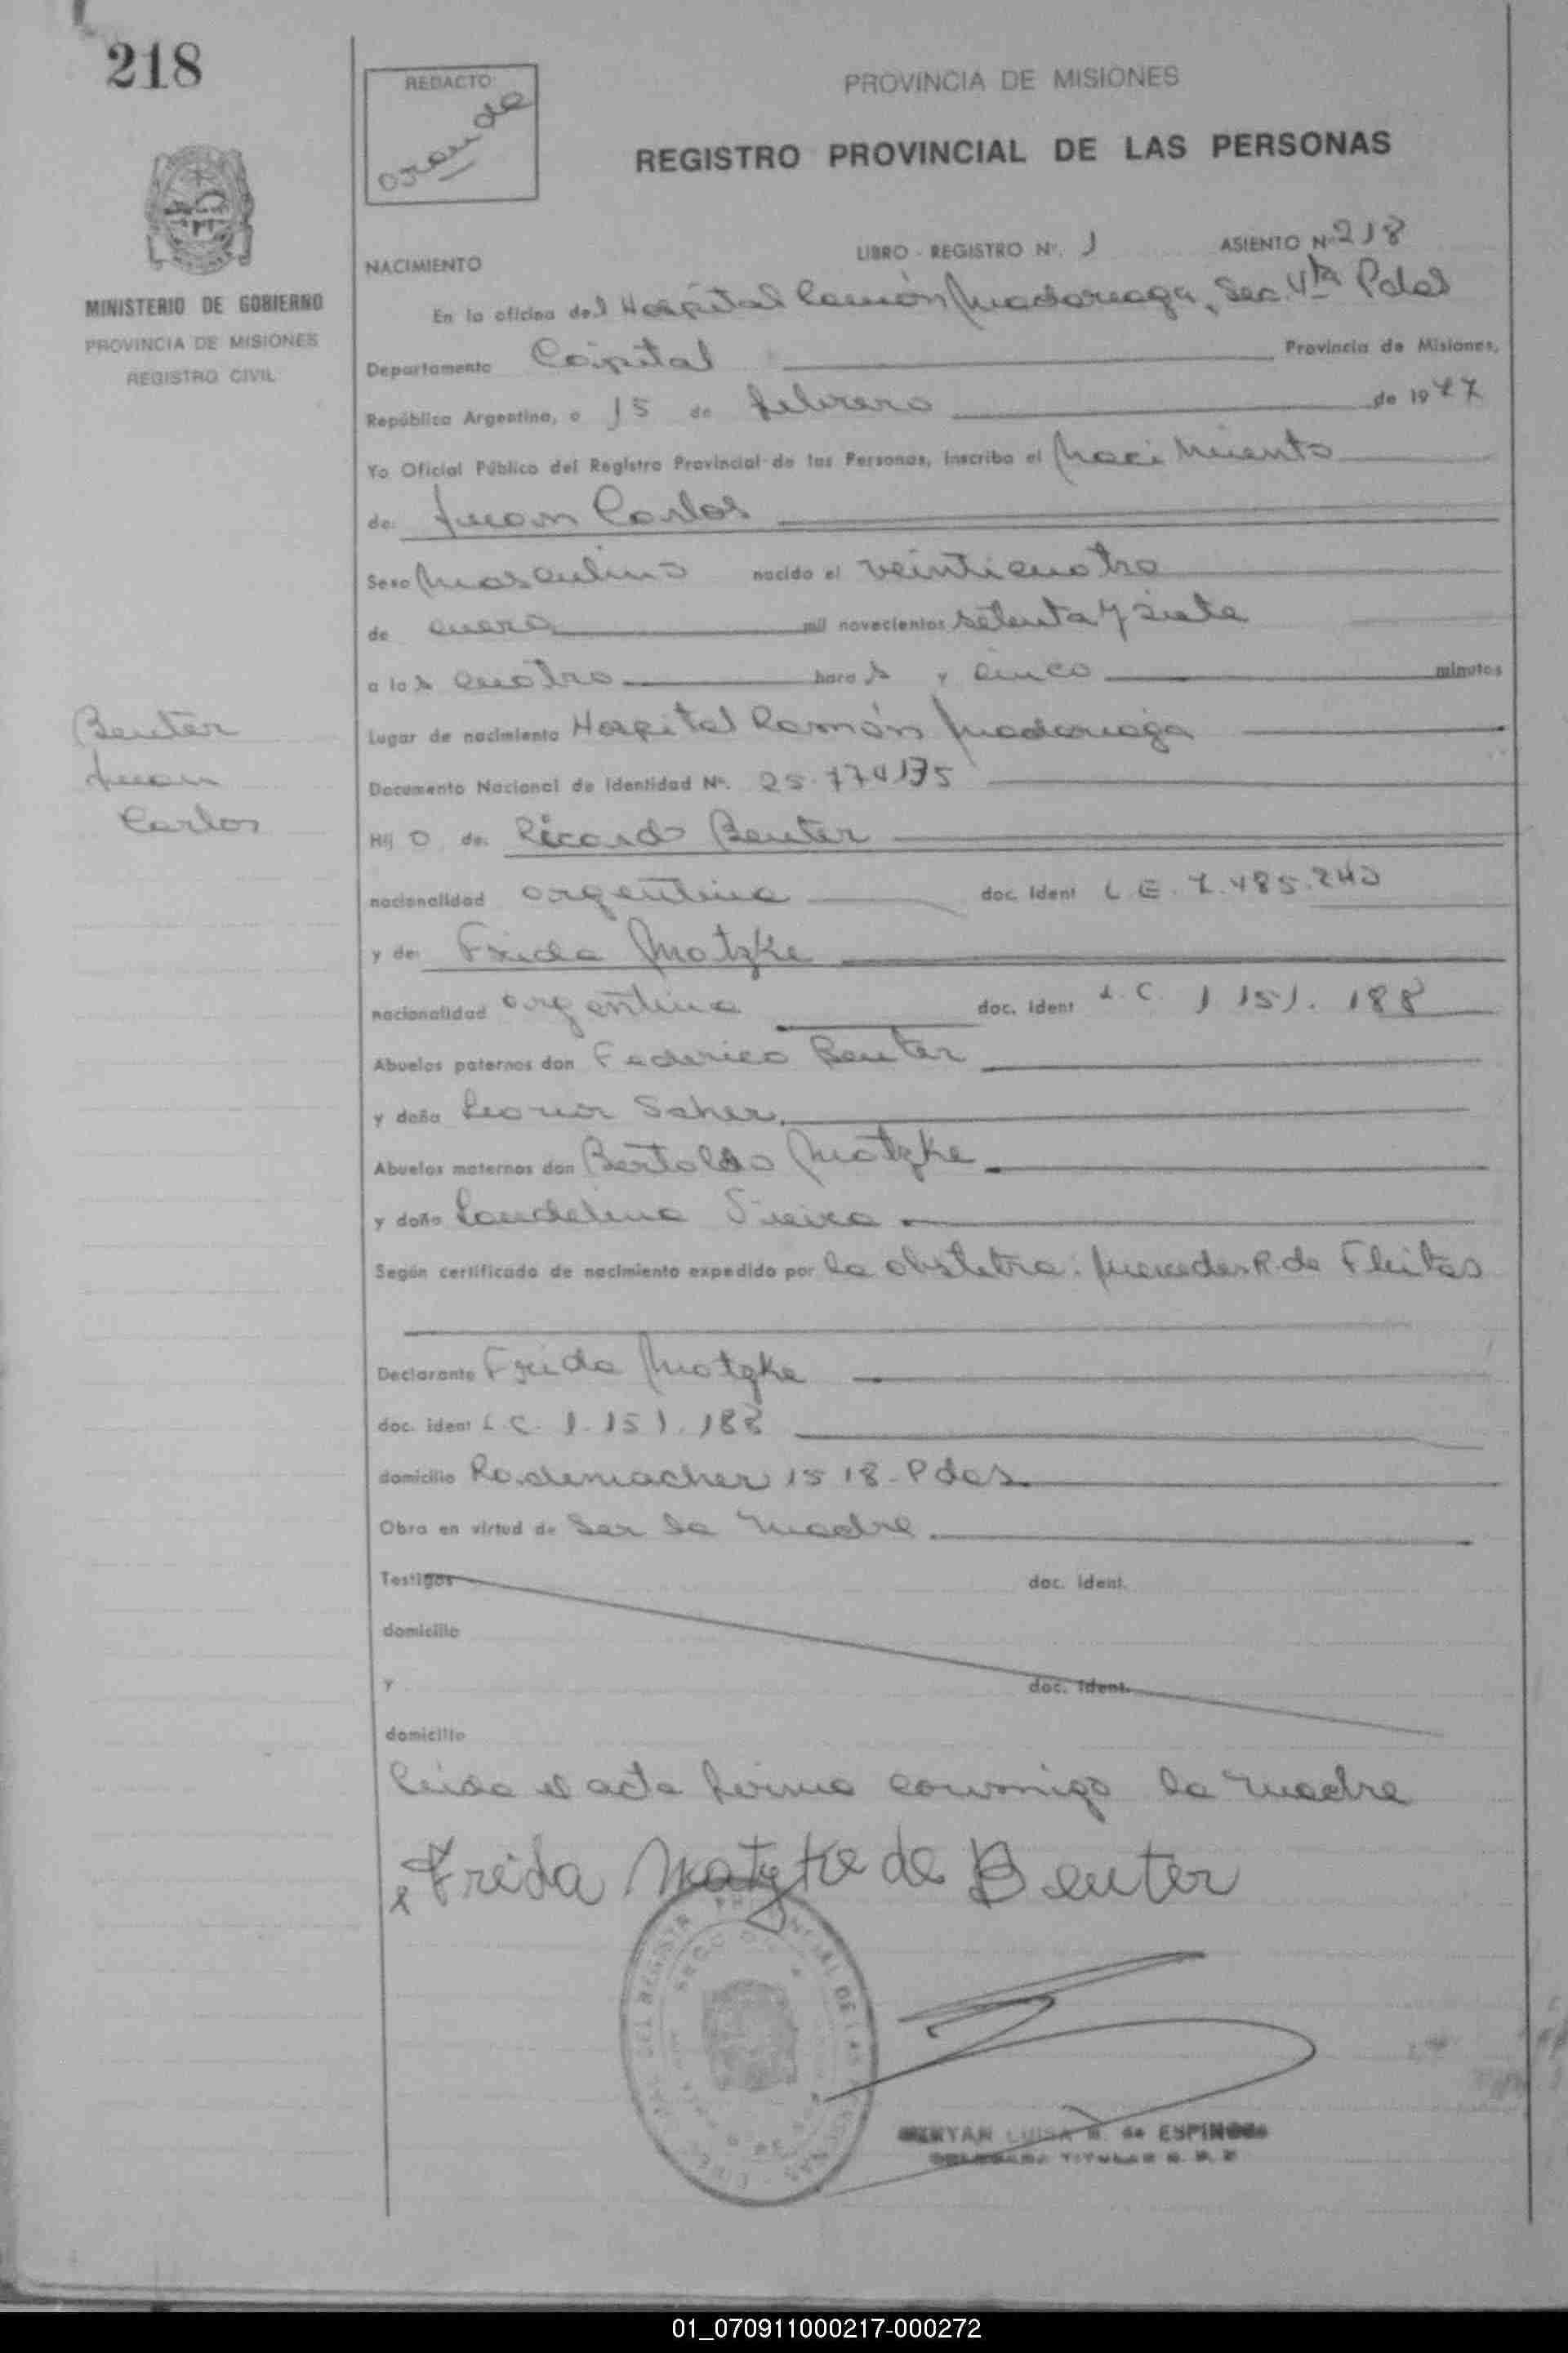 218
REDACTO:
PROVINCIA DE MISIONES
REGISTRO PROVINCIAL DE LAS PERSONAS
MINISTERIO DE GOBIERNO
PROVINCIA DE MISIONES
REGISTRO CIVIL
NACIMIENTO
LIBRO - REGISTRO Nº. 1 ASIENTO Nº 218
En la oficina del Hospital Ramón Madariaga, Sec. Vta Pdas
Departamento Capital Provincia de Misiones,
República Argentina, a 15 de febrero de 1977
Yo Oficial Público del Registro Provincial de las Personas, inscribo el Nacimiento
de: Juan Carlos
Sexo Masculino nacido el veinticuatro
de enero mil novecientos setenta y siete
a las cuatro horas y cinco minutos
Beuter
Juan
Carlos
Lugar de nacimiento Hospital Ramón Madariaga
Documento Nacional de Identidad Nº. 25.774135
Hijo de: Ricardo Beuter
nacionalidad argentina doc. Ident L E. 7.485.240
y de: Frida Matzke
nacionalidad argentina doc. Ident L. C. 1 151. 188
Abuelos paternos don Federico Beuter
y doña Leonor Saher
Abuelos maternos don Bertoldo Matzke
y doña Laudelina
Según certificado de nacimiento expedido por la obstetra: Mercedes R. de Fleitas
Declarante Frida Matzke
doc. ident L. C. 1. 151. 188
domicilio Rademacher 1518 - Pdas
Obra en virtud de Ser la madre.
Testigos doc. ident.
domicilio
y doc. ident.
domicilio
leida el acta firma conmigo la madre
Frida Matzke de Beuter
MIRYAN LUISA R. de ESPINOSA
DELEGADA TITULAR R. P. P.
01_070911000217-000272